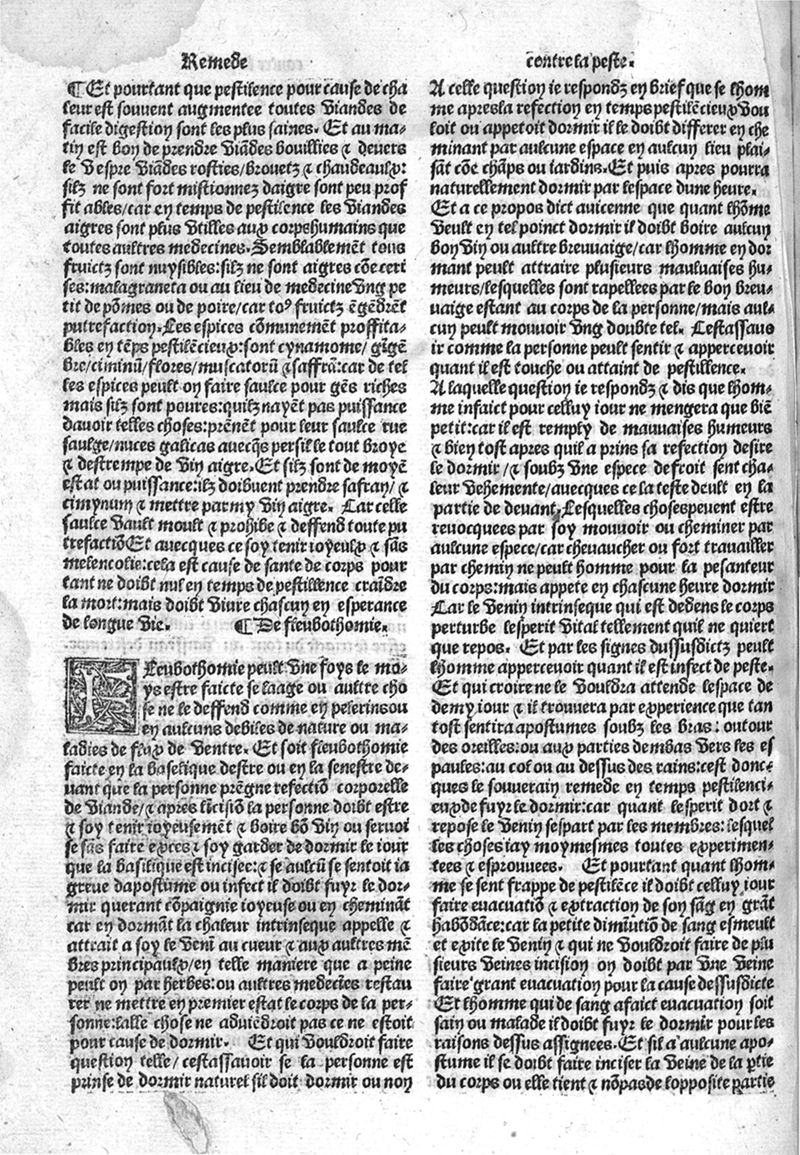 Remede
contre la peste.
¶Et pourtant que pestilence pour cause de cha
leur est souvent augmentee toutes viandes de
facile digestion sont les plus saines. Et au ma-
tin est bon de prendre viãdes bouillies ⁊ devers
le vespre viãdes rosties/brouetz ⁊ chaudeaux:
silz ne sont fort mistionnez daigre sont peu prof
fit ables/car en temps de pestilence les viandes
aigres sont plus vtilles aux corps humains que
toutes aultres medecines. Semblablemẽt tous
fruictz sont nuysibles: silz ne sont aigres cõe ceri
ses: malagraneta ou au lieu de medecine vng pe
tit de põmes ou de poire/car toꝰ fruictz ẽgẽdrẽt
putrefaction. Les espices cõmunemẽt proffita-
bles en tẽps pestilẽcieux: sont cynamome/gĩgẽ
bre/ciminũ/flores/muscatorũ ⁊ saffrã: car de tel
les espices peult on faire saulce pour gẽs riches
mais silz sont poures: quilz nayẽt pas puissance
davoir telles choses: prẽnẽt pour leur saulce rue
saulge/nuces galicas avecq̃s persil le tout broye
⁊ destrempe de vin aigre. Et silz sont de moyẽ
estat ou puissance: ilz doibuent prendre safran/⁊
cimynum ⁊ mettre parmy vin aigre. Car celle
saulce vault moult ⁊ prohibe ⁊ deffend toute pu
trefactiõ Et avecques ce soy tenir ioyeulx ⁊ sãs
melencolie: cela est cause de sante de corps pour
tant ne doibt nul en temps de pestillence craĩdre
la mort: mais doibt vivre chascun en esperance
de longue vie. ¶De fleubothomie.
FLeubothomie peult vne foys le mo-
ys estre faicte se laage ou aultre cho
se ne le deffend comme en pelerins ou
en aulcuns debiles de nature ou ma-
ladies de flux de ventre. Et soit fleubothomie
faicte en la baselique destre ou en la senestre de-
vant que la personne prẽgne refectiõ corporelle
de viande/⁊ apres lĩcisiõ la personne doibt estre
⁊ soy tenir ioyeusemẽt ⁊ boire bõ vin ou servoi
se sãs faire exces ⁊ soy garder de dormir le iour
que la basilique est incisee: ⁊ se aulcũ se sentoit ia
greue dapostume ou infect il doibt fuyr le dor-
mir querant cõpaignie ioyeuse ou en cheminãt
car en dormãt la chaleur intrinseque appelle ⁊
attrait a soy le venĩ au cueur ⁊ aux aultres mẽ
bres principaulx/en telle maniere que a peine
peult on par herbes: ou aultres medecies restau
rer ne mettre en premier estat le corps de la per-
sonne: laĺle chose ne aduiẽdroit pas ce ne estoit
pour cause de dormir. Et qui vouldroit faire
question telle/cestassavoir se la personne est
prinse de dormir naturel sil doit dormir ou non
A celle question ie respondz en brief que se lhom
me apres la refection en temps pestilẽcieux vou
loit ou appetoit dormir il le doibt differer en che
minant par aulcune espace en aulcun lieu plai-
sãt cõe chãps ou iardins. Et puis apres pourra
naturellement dormir par lespace dune heure.
Et a ce propos dict avicenne que quant lhõme
veult en tel poinct dormir il doibt boire aulcun
bon vin ou aultre breuvaige/car lhomme en dor
mant peult attraire plusieurs maulvaises hu-
meurs/lesquelles sont rapellees par le bon breu-
vaige estant au corps de la personne/mais aul-
cun peult mouvoir vng doubte tel. Cestassavo
ir comme la personne peult sentir ⁊ appercevoir
quant il est touche ou attaint de pestillence.
A laquelle question ie respondz ⁊ dis que lhom-
me infaict pour celluy iour ne mengera que biẽ
petit: car il est remply de mauvaises humeurs
⁊ bien tost apres quil a prins sa refection desire
le dormir/⁊ soubz vne espece de froit sent cha-
leur vehemente/avecques ce la teste deult en la
partie de devant. Lesquelles choses peuent estre
revocquees par soy mouvoir ou cheminer par
aulcune espece/car chevaucher ou fort travailler
par chemin ne peult homme pour la pesanteur
du corps: mais appete en chascune heure dormir
Car le venin intrinseque qui est dedens le corps
perturbe lesperit vital tellement quil ne quiert
que repos. Et par les signes dussusdictz peult
lhomme appercevoir quant il est infect de peste.
Et qui croire ne le vouldra attende lespace de
demy iour ⁊ il trouvera par experience que tan
tost sentira apostumes soubz les bras: ou tour
des oreilles: ou aux parties dembas vers les es
paules: au col ou au dessus des rains: cest donc-
ques le souverain remede en temps pestilenci-
eux de fuyr le dormir: car quant lesperit dort ⁊
repose le venin sespart par les membres: lesquel
les choses iay moymesmes toutes experimen-
tees ⁊ esprouvees. Et pourtant quant lhom-
me se sent frappe de pestilẽce il doibt celluy iour
faire evacuatiõ ⁊ extraction de soy sãg en grãt
habõdãce: car la petite diminutiõ de sang esmeult
et exite le venin ⁊ qui ne vouldroit faire de plu
sieurs veines incision on doibt par vne veine
faire grant evacuation pour la cause dessusdicte
Et lhomme qui de sang afaict evacuation soit
sain ou malade il doibt fuyr le dormir pour les
raisons dessus assignees. Et sil a aulcune apo-
stume il se doibt faire inciser la veine de la ꝑtie
du corps ou elle tient ⁊ nõ pas de lopposite ꝑartie